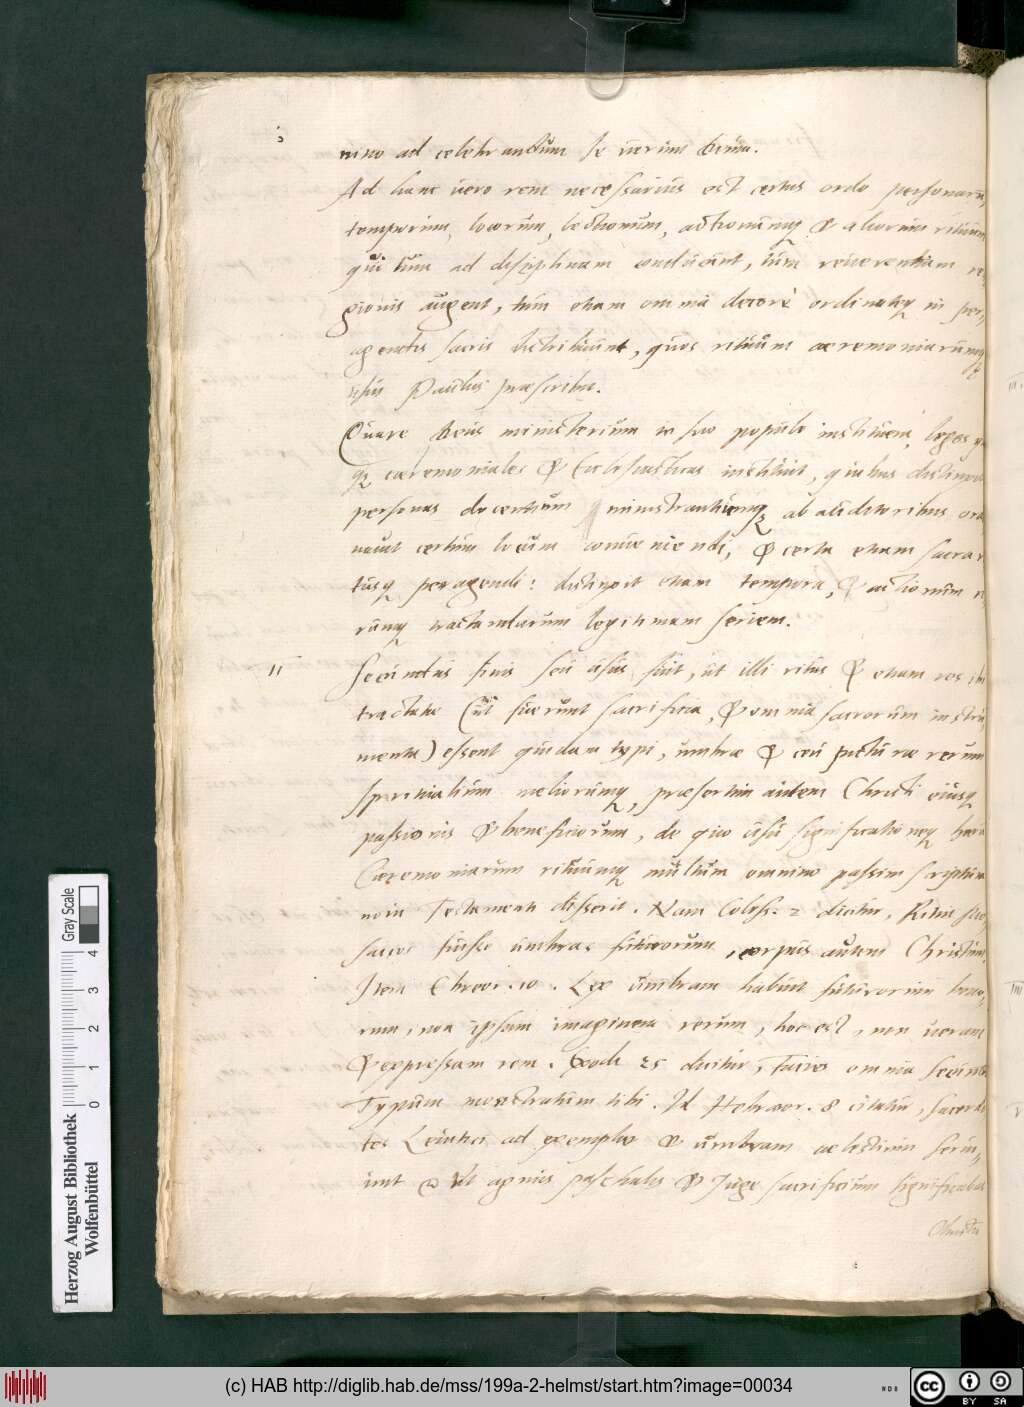 nino ad celebrandum se verum Deum.
Ad hanc vero rem necessarius est certus ordo personarū,
temporum, locorum, lectionum, actionumq & aliorum rituum
qui tum ad disciplinam conducunt, tum reverentiam re-
gionis augent, tum etiam omnia decorè ordinateq in per-
agendis sacris distribuunt, quos rituum ceremoniarumq
usus Paulus præscribit.
Quare Deus ministerium in suo populo instituens, leges
q cæremoniales & Ecclesiasticas instituit, quibus distingu
personas docentium ministrantiumq ab auditoribus ord
navit certum locum conveniendi, & certa etiam sacra
tusq peragendi: distinxit etiam tempora, & actionum
rumq tractandarum legitimam seriem.
II Secundus finis seu usus fuit, ut illi ritus & etiam res ibi
tractatæ (ut fuerunt sacrificia, & omnia sacrorum instru-
menta) essent quidam typi, umbræ & ceu picturæ rerum
spiritualium meliorumq, præsertim autem Christi eiusq
passionis & beneficiorum, de quo usu significationeq harū
Cæremoniarum rituumq multum omnino passim scriptura
novi Testamenti disserit. Nam Coloss. 2 dicitur, Ritus
sacros fuisse umbras futurorum, corpus autem Christum,
Item Ebreor. 10. Lex umbram habuit futurorum bono-
rum, non ipsam imaginem rerum, hoc est, non veram
& expressam rem. Exodi 25 dicitur, Facies omnia secundū
Typum monstratum tibi. Id Hebræor. 8 citatur, sacerdo
tes Levitici ad exemplar & umbram cælestium servi-
unt Ut agnus paschalis & Juge sacrificium significabat
Christū
0 1 2 3 4
Gray Scale
Herzog August Bibliothek
Wolfenbüttel
(c) HAB http://diglib.hab.de/mss/199a-2-helmst/start.htm?image=00034
cc BY SA